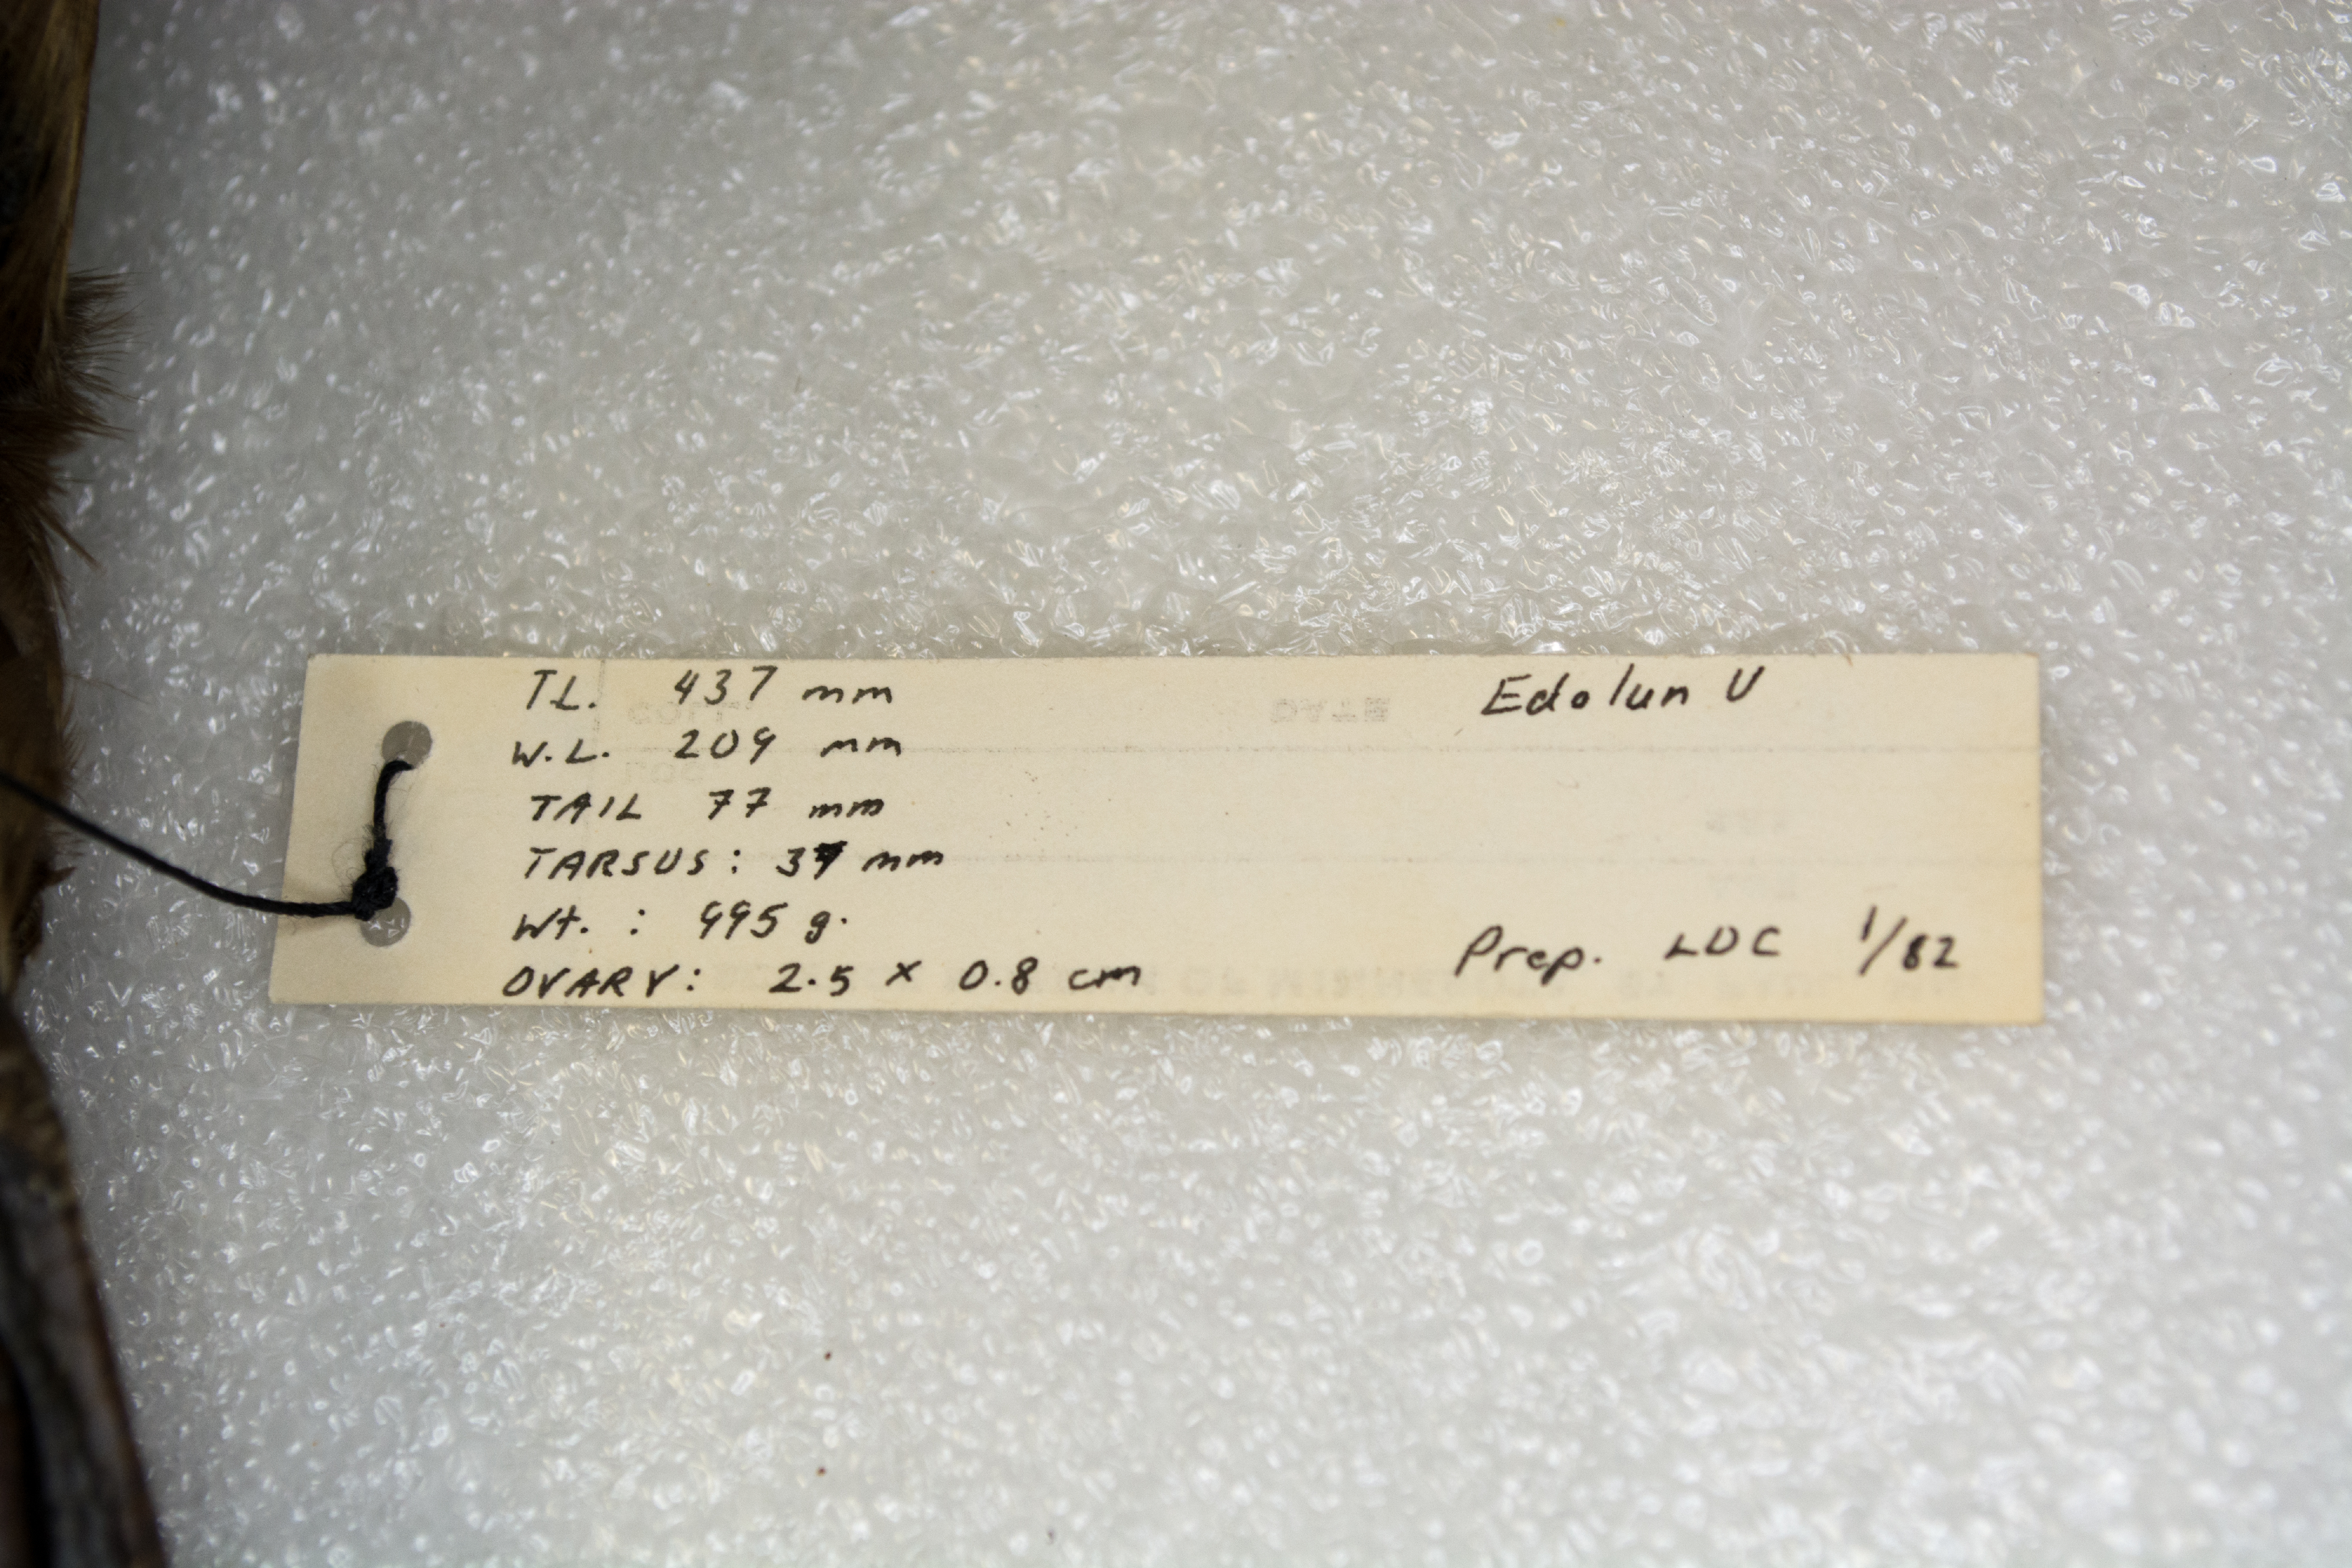 TL. 437 mm
Edolun U
W.L. 209 mm
TAIL 77 mm
TARSUS: 37 mm
Wt. : 995 g.
Prep. LDC 1/82
OVARY: 2.5 x 0.8 cm